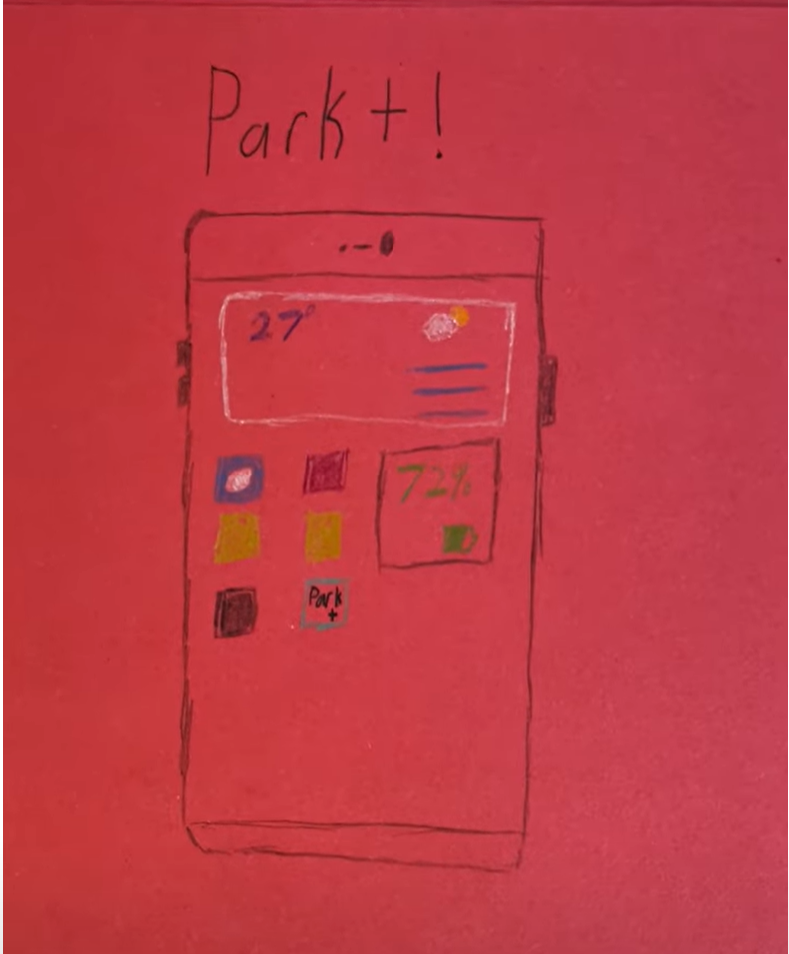 Park+!
27°
72%
Park
+